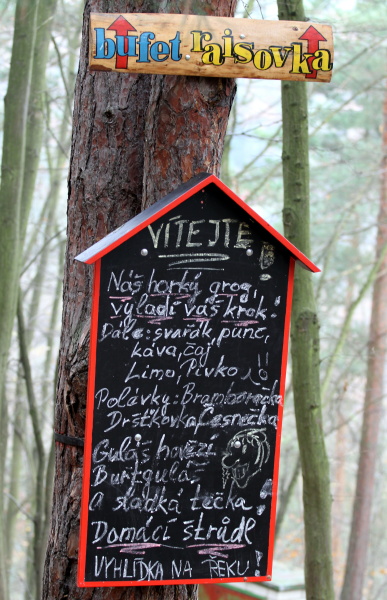 bufet raisovka
VÍTEJTE!
Náš horký grog
vyladí váš krok!
Dále: svařák, punč,
káva, čaj
Limo, Pivko!
Polávky: Bramboračka
Drštkovka Česnečka
Guláš hovězí
Buřtguláš
A sladká tečka!
Domácí štrůdl
VYHLÍDKA NA ŘEKU!